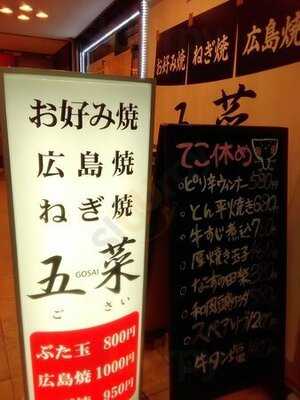 お好み焼
広島焼
ねぎ焼
五菜
GOSAI
ごさい
ぶた玉 800円
広島焼 1000円
焼 950円
お好み焼
ねぎ焼
広島焼
五菜
てこ休め
ピリ辛ウィンナー 580円
とん平焼き 680
牛すじ煮込 7
厚焼き玉子
なすの田楽
牛タン塩